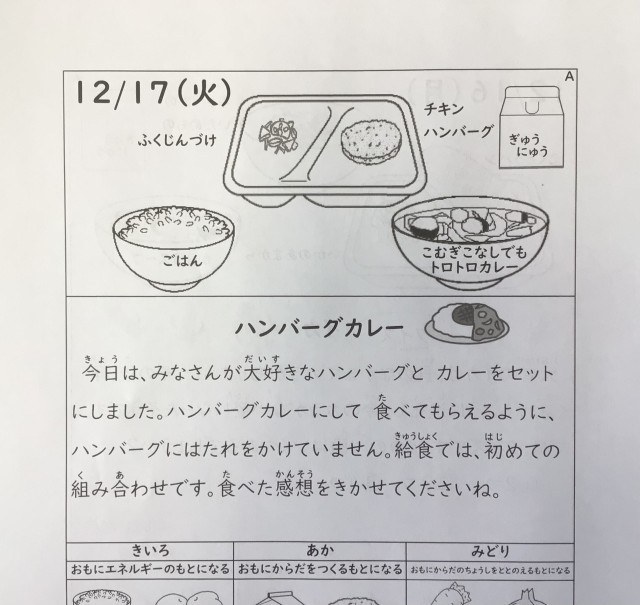 A
12/17(火)
チキン
ハンバーグ
ふくじんづけ
ぎゅう
にゅう
ごはん
こむぎこなしでも
トロトロカレー
ハンバーグカレー
今日は、みなさんが大好きなハンバーグと カレーをセット
にしました。ハンバーグカレーにして 食べてもらえるように、
ハンバーグにはたれをかけていません。給食では、初めての
組み合わせです。食べた感想をきかせてくださいね。
きいろ あか みどり
おもにエネルギーのもとになる おもにからだをつくるもとになる おもにからだのちょうしをととのえるもとになる